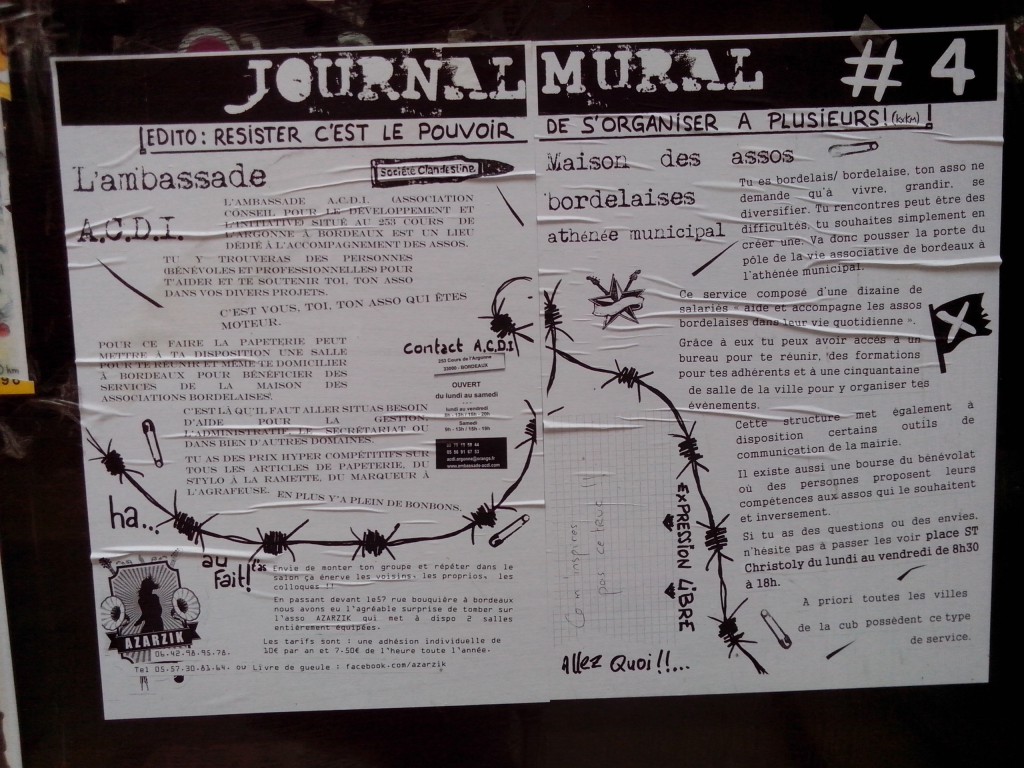 JOURNAL MURAL # 4
EDITO : RESISTER C'EST LE POUVOIR DE S'ORGANISER A PLUSIEURS !
L'ambassade
A.C.D.I.
Société Clandestine
L'AMBASSADE A.C.D.I. (ASSOCIATION
CONSEIL POUR LE DÉVELOPPEMENT ET
L'INITIATIVE) SITUÉ AU 253 COURS DE
L'ARGONNE À BORDEAUX EST UN LIEU
DÉDIÉ À L'ACCOMPAGNEMENT DES ASSOS.
TU Y TROUVERAS DES PERSONNES
(BÉNÉVOLES ET PROFESSIONNELLES) POUR
T'AIDER ET TE SOUTENIR TOI, TON ASSO
DANS VOS DIVERS PROJETS.
C'EST VOUS, TOI, TON ASSO QUI ÊTES
MOTEUR.
POUR CE FAIRE LA PAPETERIE PEUT
METTRE À TA DISPOSITION UNE SALLE
POUR TE RÉUNIR ET MÊME TE DOMICILIER
À BORDEAUX POUR BÉNÉFICIER DES
SERVICES DE LA MAISON DES
ASSOCIATIONS BORDELAISES.
Contact A.C.D.I
253 Cours de l'Argonne
33000 - BORDEAUX
OUVERT
du lundi au samedi
lundi au vendredi
Samedi
www.ambassade-acdi.com
C'EST LÀ QU'IL FAUT ALLER SI TU AS BESOIN
D'AIDE POUR LA GESTION,
L'ADMINISTRATIF, LE SECRÉTARIAT OU
DANS BIEN D'AUTRES DOMAINES.
TU AS DES PRIX HYPER COMPÉTITIFS SUR
TOUS LES ARTICLES DE PAPETERIE, DU
STYLO À LA RAMETTE, DU MARQUEUR À
L'AGRAFEUSE.
EN PLUS Y'A PLEIN DE BONBONS.
ha...
au
Fait!
t'as
Envie de monter ton groupe et répéter dans le
salon ça énerve les voisins, les proprios, les
colloques !!
En passant devant le57 rue bouquière à bordeaux
nous avons eu l'agréable surprise de tomber sur
l'asso AZARZIK qui met à dispo 2 salles
entièrement équipées.
Les tarifs sont : une adhésion individuelle de
10€ par an et 7.50€ de l'heure toute l'année.
AZARZIK
06.42.98.95.78.
Tel 05.57.30.81.64. ou Livre de gueule : facebook.com/azarzik
Maison des assos
bordelaises
athénée municipal
Tu es bordelais/ bordelaise, ton asso ne
demande qu'à vivre, grandir, se
diversifier. Tu rencontres peut être des
difficultés, tu souhaites simplement en
créer une. Va donc pousser la porte du
pôle de la vie associative de bordeaux à
l'athénée municipal.
Ce service composé d'une dizaine de
salariés « aide et accompagne les assos
bordelaises dans leur vie quotidienne ».
Grâce à eux tu peux avoir accès à un
bureau pour te réunir, des formations
pour tes adhérents et à une cinquantaine
de salle de la ville pour y organiser tes
événements.
Cette structure met également à
disposition certains outils de
communication de la mairie.
Il existe aussi une bourse du bénévolat
où des personnes proposent leurs
compétences aux assos qui le souhaitent
et inversement.
Si tu as des questions ou des envies,
n'hésite pas à passer les voir place ST
Christoly du lundi au vendredi de 8h30
à 18h.
A priori toutes les villes
de la cub possèdent ce type
de service.
EXPRESSION LIBRE
Allez Quoi!!...